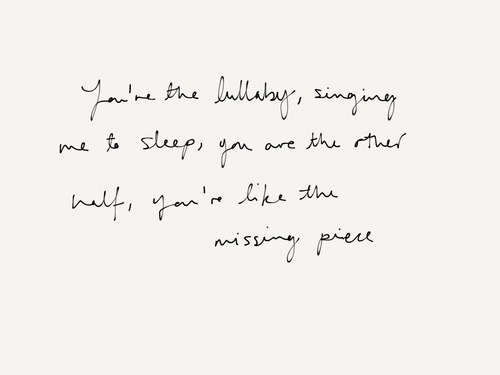 You're the lullaby, singing
me to sleep, you are the other
half, you're like the
missing piece